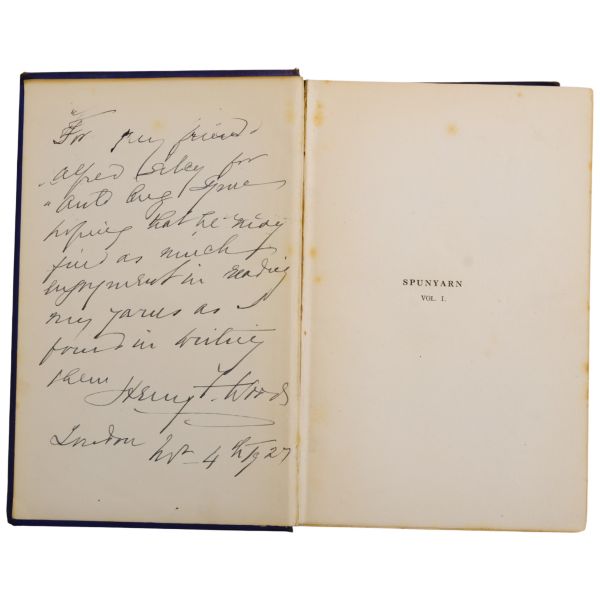 For my friend
Alfred for
"Auld Lang Syne
hoping that he may
find as much
enjoyment in reading
my yarns as I
found in writing
them Henry F. Woods
London Nov 4th 1927
SPUNYARN
VOL. I.